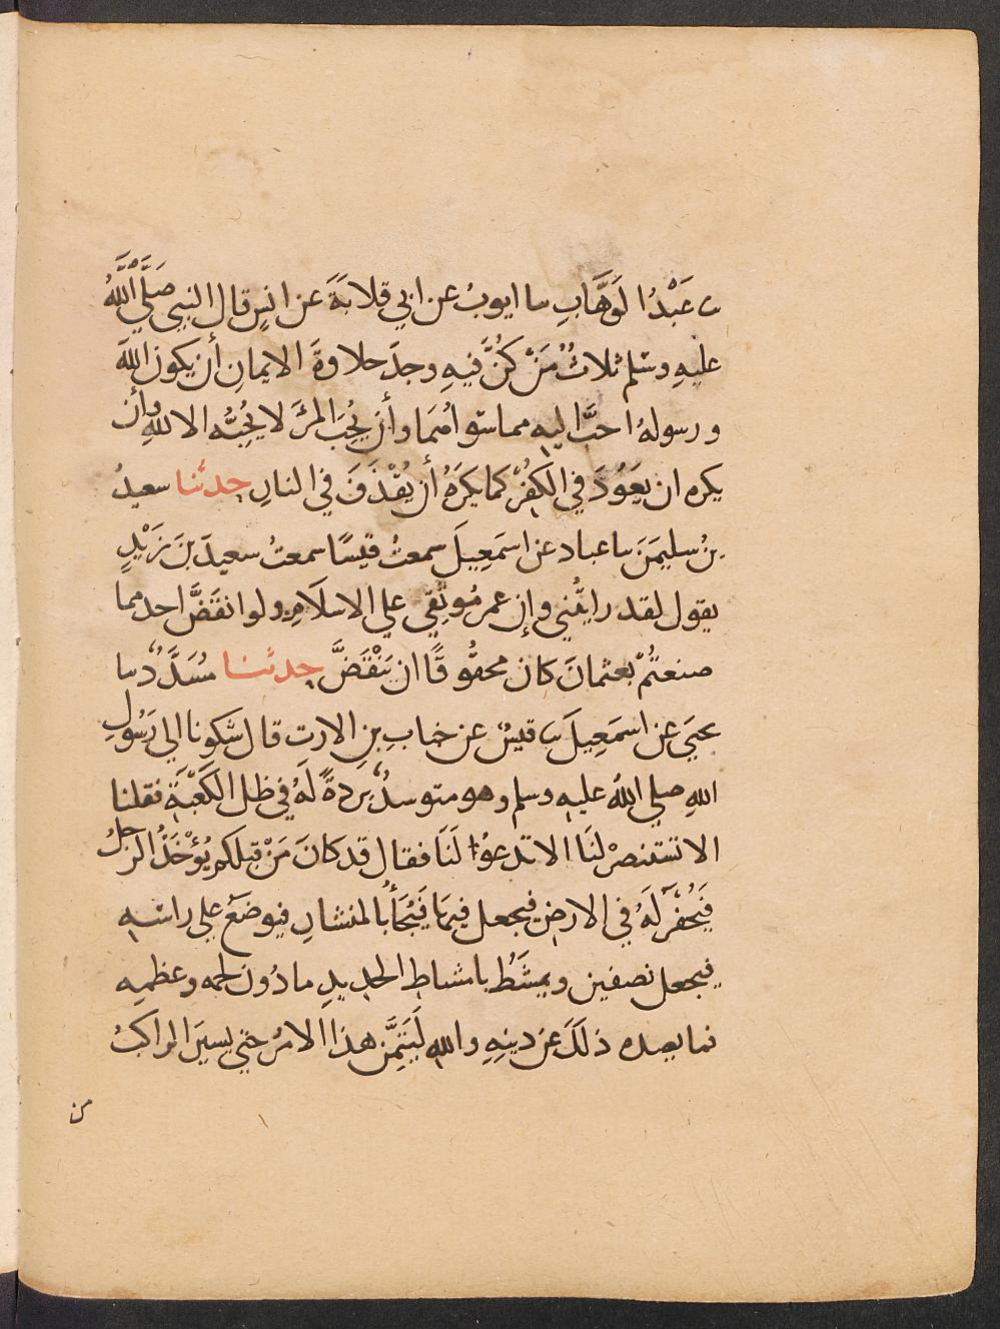 ثنا عَبْدُ الوَهَّابِ ثنا ايوبُ عن ابي قلابَةَ عن انسٍ قال النبي صَلَّى اللَّهُ
عليهِ وسلم ثلاثٌ مَنْ كُنَّ فيهِ وجدَ حلاوةَ الايمانِ أن يكون اللهَ
ورسولهُ احبَّ اليهِ مما سواهُمَا وأن يُحِبَ المرَ لا يُحِبُّه الا للهِ وأن
يكره ان يَعَوُدَ في الكفُرْ كما يَكرَهُ أن يُقْذَفَ في النارِ حدثنا سعيدُ
بنُ سليمَنَ ثنا عباد عن اسمَعِيلَ سمعتُ قيسًا سمعتُ سعيدَ بنَ زَيْدٍ
يقول لقد رايتُني وإن عمر مُوثِقِي علي الاسلَامِ ولو انقَضَّ احد مما
صنعتُمْ بعثمانَ كان محقُوقًا ان يَنْقَضَّ حدثنا مُسَدَّدٌ ثنا
يحيَي عن اسمَعِيلَ ثنا قيسٌ عن خبابِ بنِ الارت قال شكونا الي رَسُولِ
اللهِ صلي اللهُ عليهِ وسلم وهو متوسدٌ بَردةً لَهُ في ظل الكَعْبَةِ فقلنا
الا تستنصرْ لنَا الا تدعوُا لَنَا فقال قد كانَ مَنْ قبلكم يُؤْخَذُ الرَجلُ
فَيُحْفَرُ لَهُ في الارضِ فيجعل فيهَا فَيُجَأُ بالمنشارِ فيوضعَ علي راسهِ
فيجعل نصفين ويمشَطُ بامشاطِ الحديدِ ما دُونَ لحمه وعظمهِ
فما يصده ذلكَ عن دينهِ واللهِ لَيَتِمَّن هذا الامرُ حتي يسيرَ الراكبُ
من